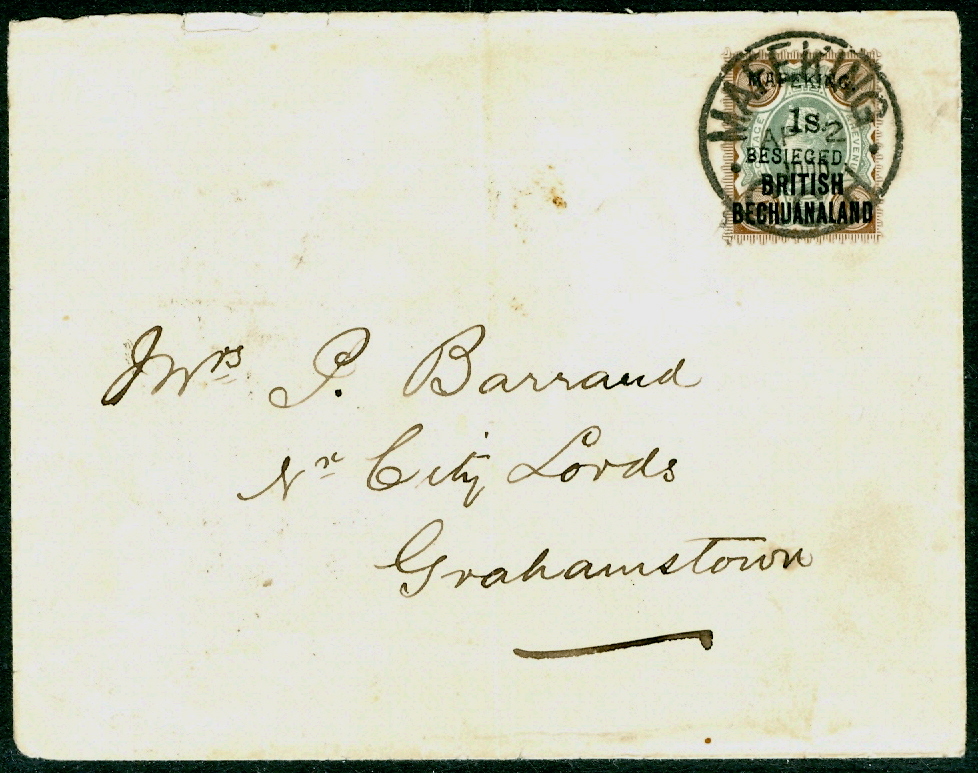 MAFEKING
MAFEKING,
1s.
BESIEGED.
BRITISH
BECHUANALAND
Mrs P. Barraud
Nr City Lords
Grahamstown